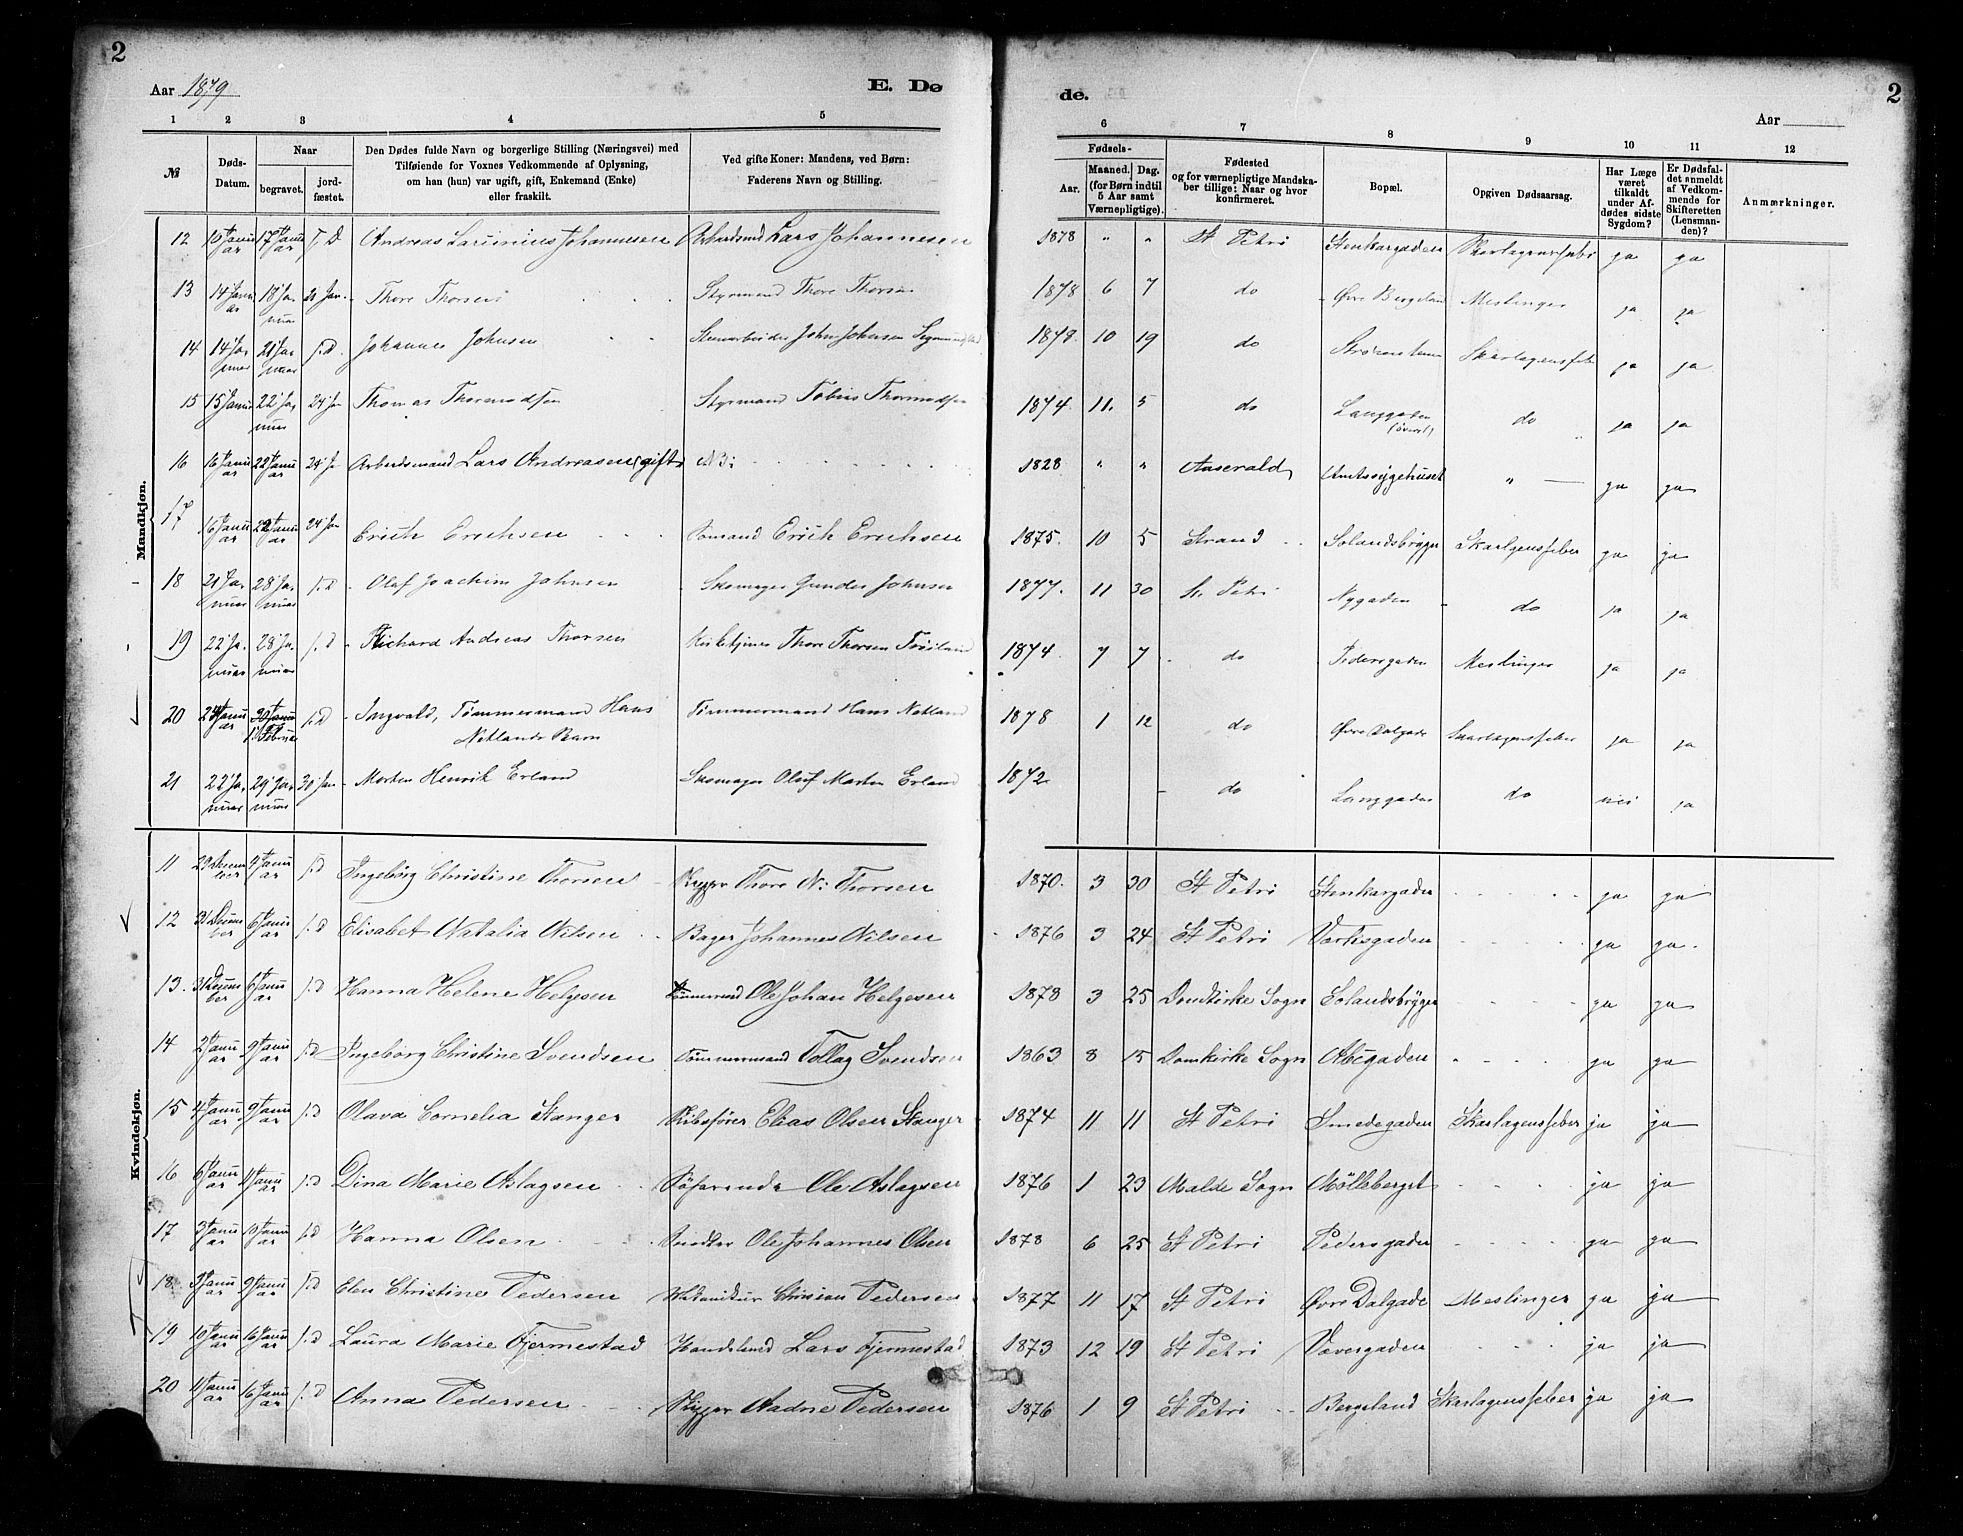 2
2
Aar 1879
E. Dø
de.
Aar
1 2 3 4 5 6 7 8 9 10 11 12
№
Døds-Datum.
Naar
begravet.
jord-fæstet.
Den Dødes fulde Navn og borgerlige Stilling (Næringsvei) med
Tilføiende for Voxnes Vedkommende af Oplysning,
om han (hun) var ugift, gift, Enkemand (Enke)
eller fraskilt.
Ved gifte Koner: Mandens, ved Børn:
Faderens Navn og Stilling.
Fødsels-
Aar.
Maaned. Dag.
(for Børn indtil
5 Aar samt
Værnepligtige).
Fødested
og for værnepligtige Mandska-
ber tillige: Naar og hvor
konfirmeret.
Bopæl.
Opgiven Dødsaarsag.
Har Læge
været
tilkaldt
under Af-
dødes sidste
Sygdom?
Er Dødsfal-
det anmeldt
af Vedkom-
mende for
Skifteretten
(Lensman-
den)?
Anmærkninger.
Mandkjøn.
12 17 Januar J. D Andreas Laurinius Johannesen Arbeidsmd Lars Johannesen 1878 " " St Petri Stenkargaden Skarlagensfeber ja ja
13 14 Januar 18 Januar 21 Jan. Thore Thorsen Styrmand Thore Thorsen 1878 6 7 do Øvre Bergeland Meslinger ja ja
14 14 Januar 21 Januar J. D. Johannes Johnsen Stenarbeider John Johnsen 1878 10 19 do Skarlagensfeber ja ja
15 15 Januar 22 Januar 24 Jan Thomas Thormodsen Styrmand Tobias Thormodsen 1874 11. 5 do Langgaden (øverst) do ja ja
16 16 Januar 22 Januar 24 Ja Arbeidsmand Lars Andreasen (gift) 1828 " " Aaserald Amtssygehuset " ja ja
17 16 Januar 22 Januar 24 Jan Erich Erichsen Sømand Erich Erichsen 1875. 10 5 Strand Solandsbrygge Skarlgensfeber ja ja
18 21 Januar 28 Januar J. D Olaf Joachim Johnsen Skomager Gunder Johnsen 1877. 11 30 St. Petri Nygaden do ja ja
19 22 Januar 28 Januar J. D Richard Andreas Thorsen Thore Thorsen 1874 7 7 do Pedersgaden Meslinger ja ja
20 24 Januar 1 Februar J. D Ingvald, Tømmermand Hans
Netlands Barn Tømmermand Hans Netland 1878 1 12 do Øvre Dalgade Skarlagensfeber ja ja
21 22 Januar 29 Januar 30 Jan Morten Henrik Erland Skomager Oluf Morten Erland 1872 do Langgaden do nei ja
Kvindekjøn.
11 29 December 4 Januar J. D Ingeborg Christine Thorsen Skipper Thore N. Thorsen 1870. 3 30 St Petri Stenkargaden ja ja
12 31 December 6 Januar J. D Elisabet Natalia Nilsen Bager Johannes Nilsen 1876 3 24 St Petri Værksgaden ja ja.
13. 31 December 6 Januar J. D Hanna Helene Helgesen Tømmermd Ole Johan Helgesen 1878 3 25 Domkirke Sogn Solandsbrygge ja ja
14 2 Januar 9 Januar J. D Ingeborg Christine Svendsen Tømmermand Tollag Svendsen 1863 8 15 Domkirke Sogn Abegaden ja ja
15 4 Januar 9 Januar J. D Olava Cornelia Stanger Elias Olsen Stanger 1874 11 11 St Petri Smedegaden Skarlagensfeber ja ja
16 6 Januar 11 Januar J. D Dina Marie Aslagsen Søfarende Ole Aslagsen 1876 1 23 Malde Sogn Mølleberget ja ja
17 3 Januar Januar J. D Hanna Olsen Snedker Ole Johannes Olsen 1878 6 25 St Petri Pedersgaden ja ja
18 3 Januar 9 Januar J. D Elen Christine Pedersen Christian Pedersen 1877 11 17 St Petri Øvre Dalgade Meslinger ja ja
19 10 Januar 16 Januar J. D Laura Marie Fjermestad Handelsmd Lars Fjermestad 1873 12 19 St Petri Vævergaden ja ja
20 11 Januar 16 Januar J. D Anna Pedersen Skipper Aadne Pedersen 1876 1 9 St Petri Bergeland Skarlagensfeber ja ja